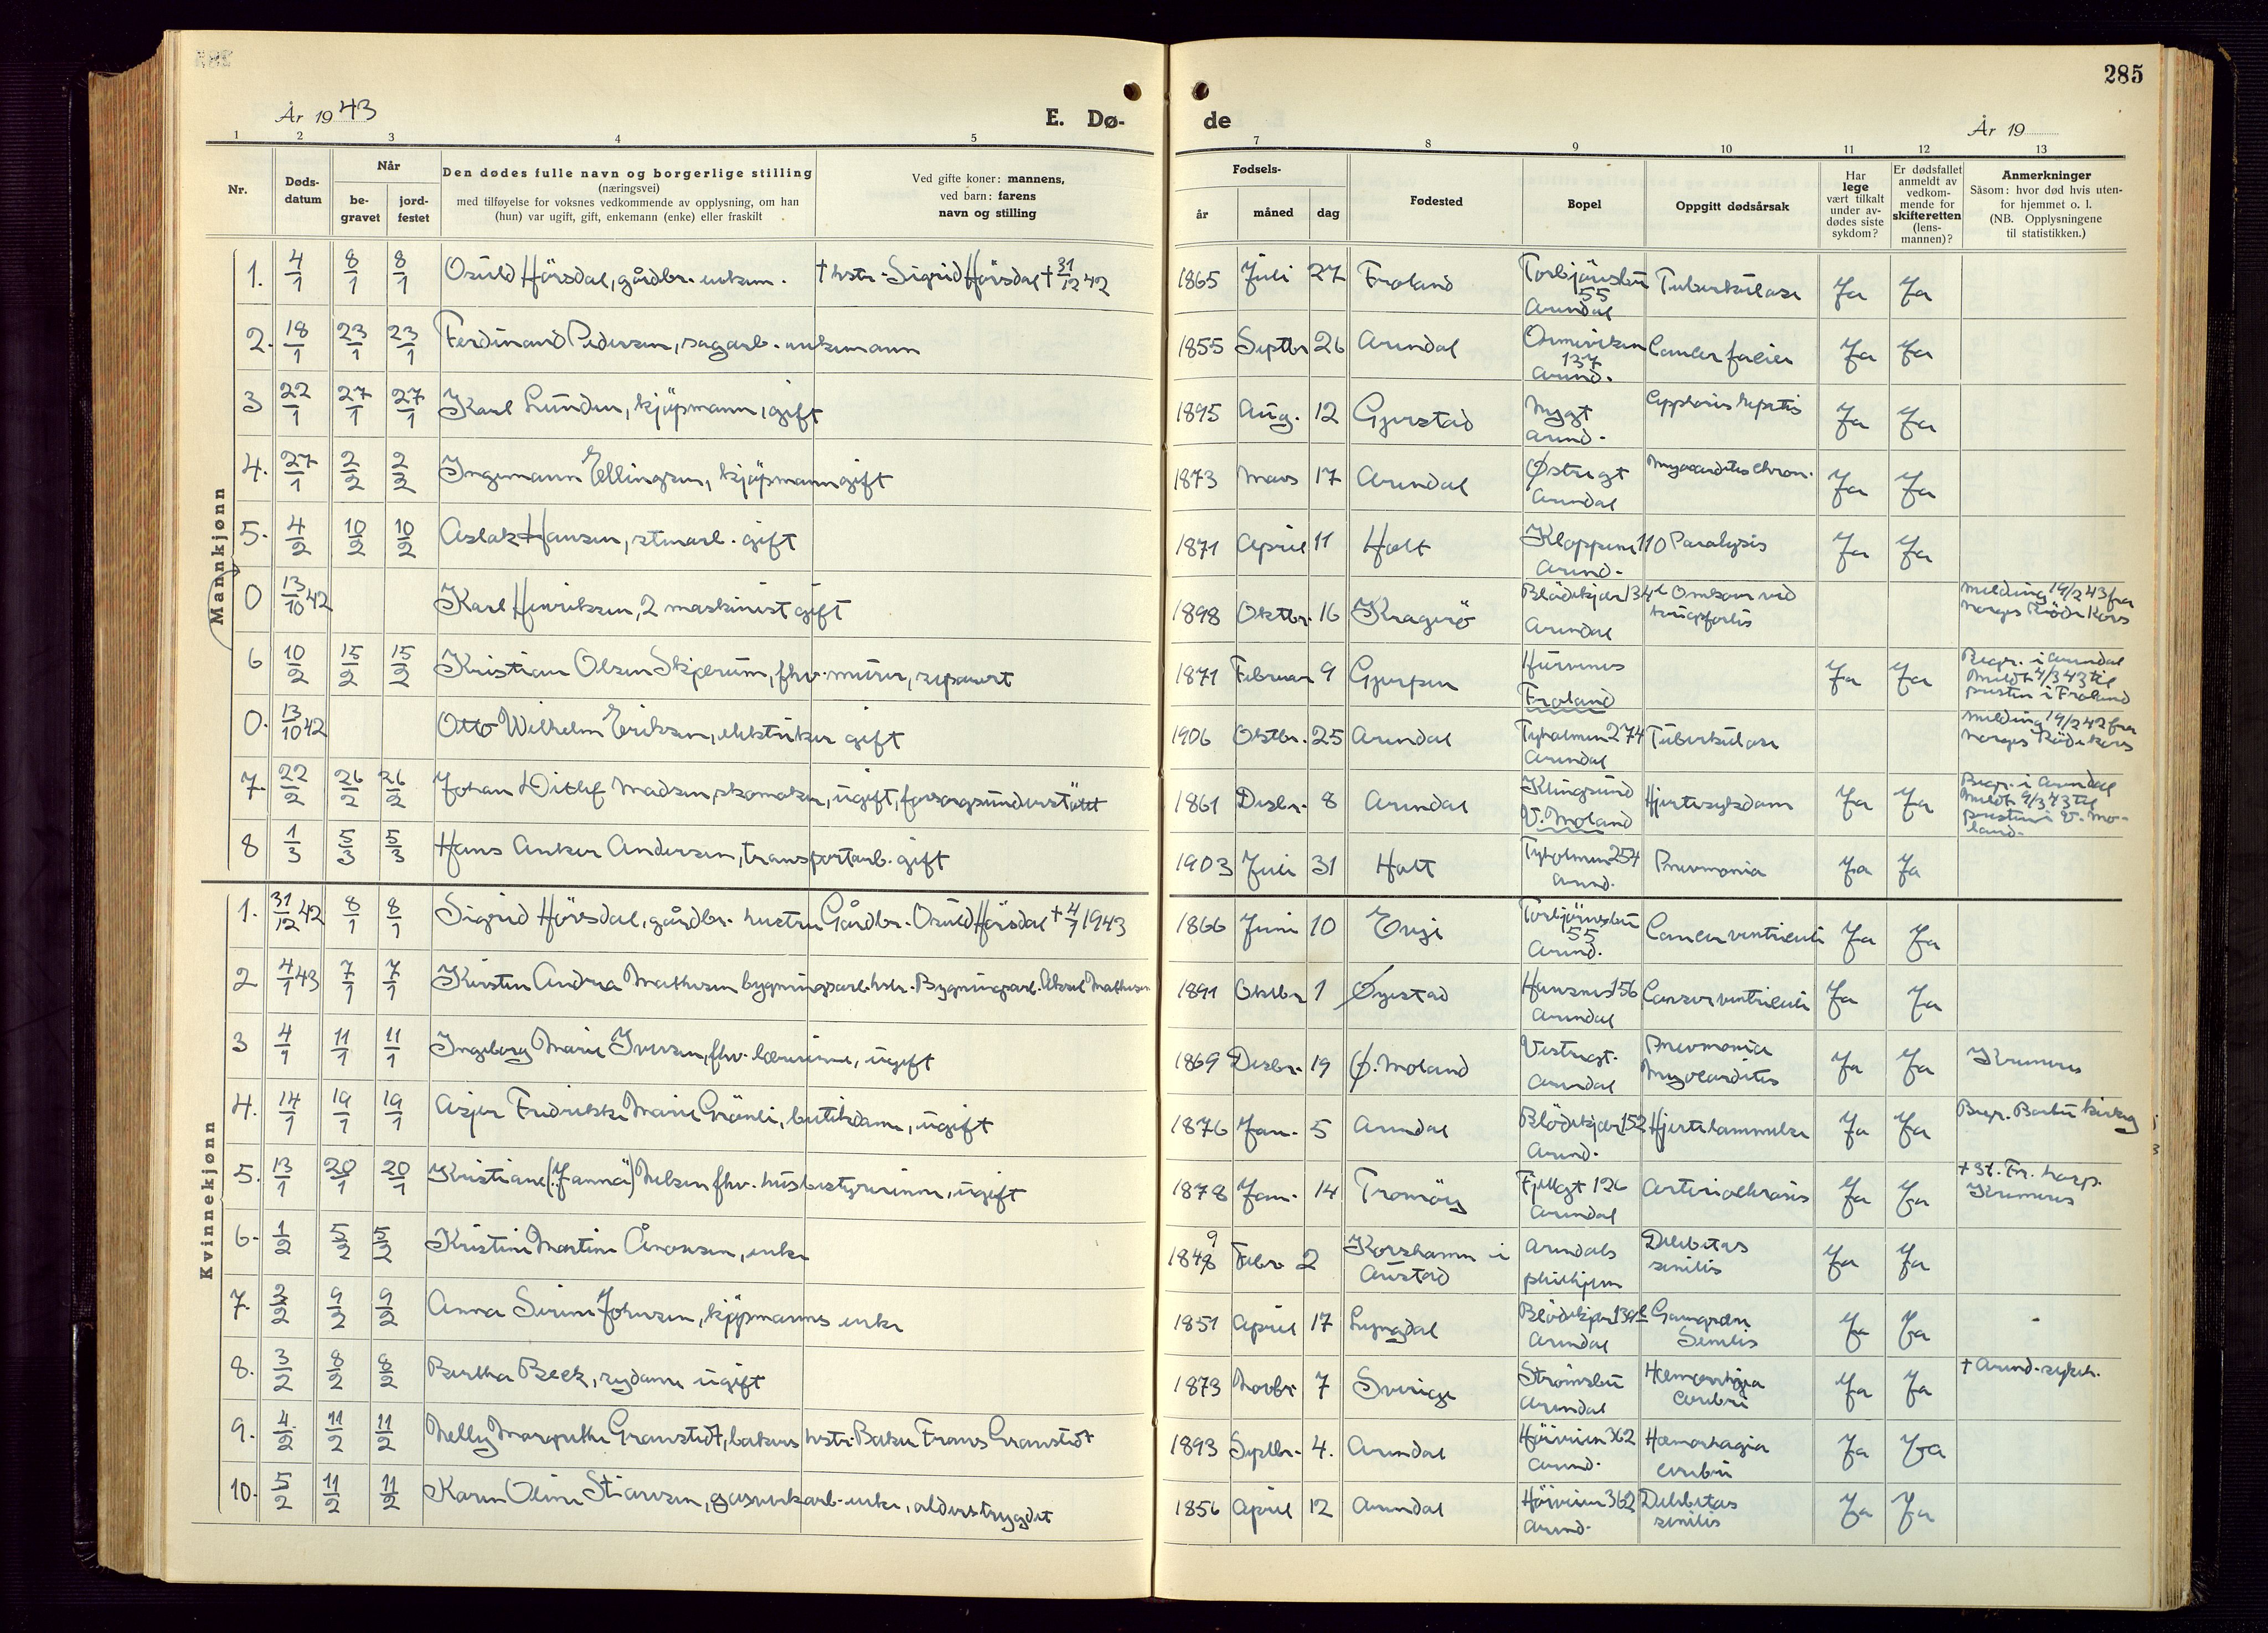 285
År 1943
E. Dø-
de
År 19
1 2 3 4 5
7 8 9 10 11 12 13
Nr.
Døds-
datum
Når
be-
gravet
jord-
festet
Den dødes fulle navn og borgerlige stilling
(næringsvei)
med tilføyelse for voksnes vedkommende av opplysning, om han
(hun) var ugift, gift, enkemann (enke) eller fraskilt
Ved gifte koner: mannens,
ved barn: farens
navn og stilling
Fødsels-
år måned dag
Fødested
Bopel
Oppgitt dødsårsak
Har
lege
vært tilkalt
under av-
dødes siste
sykdom?
Er dødsfallet
anmeldt av
vedkom-
mende for
skifteretten
(lens-
mannen)?
Anmerkninger
Såsom: hvor død hvis uten-
for hjemmet o. l.
(NB. Opplysningene
til statistikken.)
Mannkjønn
1. 4/1 8/1 8/1 Osuld Hørsdal, gårdbr. enkem. † hstr. Sigrid Hørsdal † 31/12 42 1865 Juli 27 Froland Torbjörnsbu 55 Arendal Tuberkulose Ja Ja
2. 18/1 23/1 23/1 Ferdinand Pedersen, sagarb. enkemann 1855 Septbr 26 Arendal 137 Arend. Cancer faciei Ja Ja
3 22/1 27/1 27/1 Karl Lunden, kjöpmann, gift 1895 Aug. 12 Gjerstad Nygt Arend. Ja Ja
4. 27/1 2/2 2/2 Ingemann Ellingsen, kjöpmann gift 1873 Mars 17 Arendal Østregt Arendal Myocarditis chron. Ja Ja
5. 4/2 10/2 10/2 Aslak Hansen, stenarb. gift 1871 April 11 Holt Kloppene 110 Arend. Paralysis Ja Ja
0 13/10 42 Karl Henriksen, 2 maskinist gift 1898 Oktbr. 16 Kragerö Blödekjær 134 Arendal Omkom ved krigsforlis Melding 19/2 43 fra Norges Röde Kors
6 10/2 15/2 15/2 Kristian Olsen Skjerum, fhv. murer, separert 1871 Februar 9 Gjerpen Hurvenes Froland Ja Ja Begr. i Arendal Meldt 9/3 43 til presten i Froland
0. 13/10 42 Otto Wilhelm Eriksen, elektriker gift 1906 Oktbr. 25 Arendal Tyholmen 274 Arendal Tuberkulose Melding 19/2 42 fra Norges Röde Kors
7. 22/2 26/2 26/2 Johan Ditlef Madsen, skomaker, ugift, forsorgsunderstöttet 1861 Desbr. 8 Arendal Klingsund V. Moland Hjertesykdom Ja Ja Begr. i Arendal Meldt 9/3 43 til presten i V. Mo- land.
8 1/3 5/3 5/3 Hans Anker Andersen, transportarb. gift 1903 Juli 31 Holt Tyholmen 254 Arend. Pnevmonia Ja Ja
Kvinnekjønn
1. 31/12 42 8/1 8/1 Sigrid Hørsdal, gårdbr. hustru Gårdbr. Osuld Hørsdal † 4/1 1943 1866 Juni 10 Evje Torbjörnsbu 55 Arend. Cancer ventriculi Ja Ja
2 4/1 43 7/1 7/1 Kirsten Andrea Mathesen bygningsarb. hstr. Bygningsarb. Aksel Mathesen 1891 Oktbr 1 Øyestad Hansnes 156 Arendal Canser ventriculi Ja Ja
3 4/1 11/1 11/1 Ingeborg Marie Iversen, fhv. lærerinne, ugift 1869 Desbr. 19 Ø. Moland Vestregt. Arendal Pnevmonia Myocarditis Ja Ja Kremeres
4. 14/1 19/1 19/1 Asjer Fredrikke Marie Grönli, butikdame, ugift 1876 Jan. 5 Arendal Blödekjær 152 Arend. Hjertelammelse Ja Ja Begr. Barbu kirkeg
5. 13/1 20/1 20/1 Kristiane (Janna) Nelsen fhv. husbestyrerinne, ugift 1878 Jan. 14 Tromöy Fjellgt 126 Arendal Arteriosklerosis Ja Ja † St. Fr. hosp. Kremeres
6. 1/2 5/2 5/2 Kristine Martine Aronsen, enke 1849 Febr 2 Korshamn i Austad Arendals pleiehjem Debilitas senilis Ja Ja
7. 2/2 9/2 9/2 Anna Serine Johnsen, kjöpmanns enke 1851 April 17 Lyngdal Blödekjær Arendal Gangræn Senilis Ja Ja
8. 3/2 8/2 8/2 Bertha Beck, sydame ugift 1873 Novbr. 7 Sverige Strömsbu Arendal Hæmorrhagia cerebri Ja Ja † Arend. sykeh.
9. 4/2 11/2 11/2 Nelly Margrethe Granstedt, bakers hstr. Baker Frans Granstedt 1893 Septbr. 4. Arendal 362 Arend. Hæmorhagia cerebri Ja Ja
10. 5/2 11/2 11/2 Karen Oline Stiansen, gasverkarb. enke, alderstrygdet 1856 April 12 Arendal 362 Arend. Debilitas senilis Ja Ja